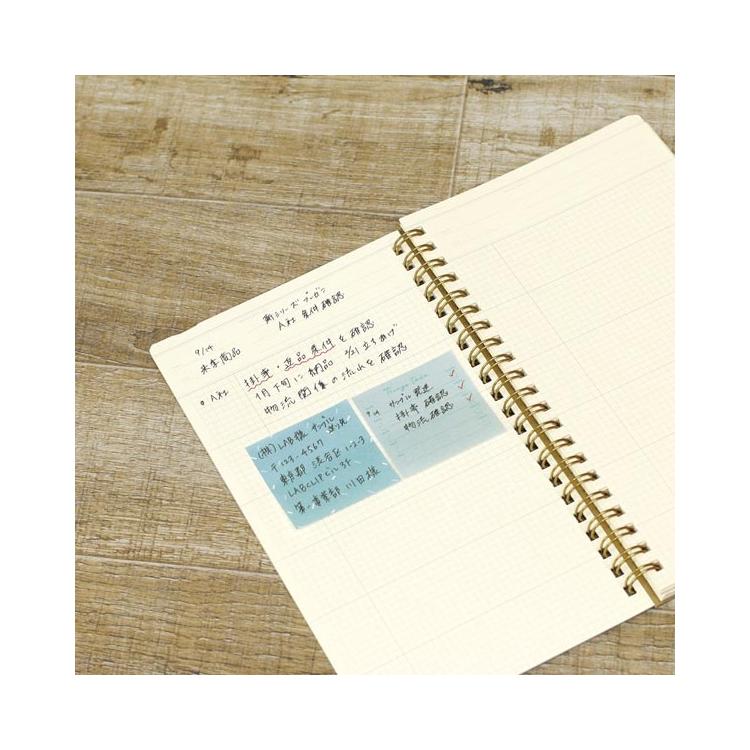 新シリーズ プレゼン
A社 条件確認
9/14
来季商品
• A社 掛率・返品条件を確認
1月下旬に納品 2/21立ちあげ
物流関係の流れを確認
(株)LAB様 サンプル送り先
〒123-4567
東京都 渋谷区 1-2-3
LABCLIPビル3F
第一事業部 川田様
Things to do
9/14 サンプル発送 ✓
掛率確認 ✓
物流確認 ✓